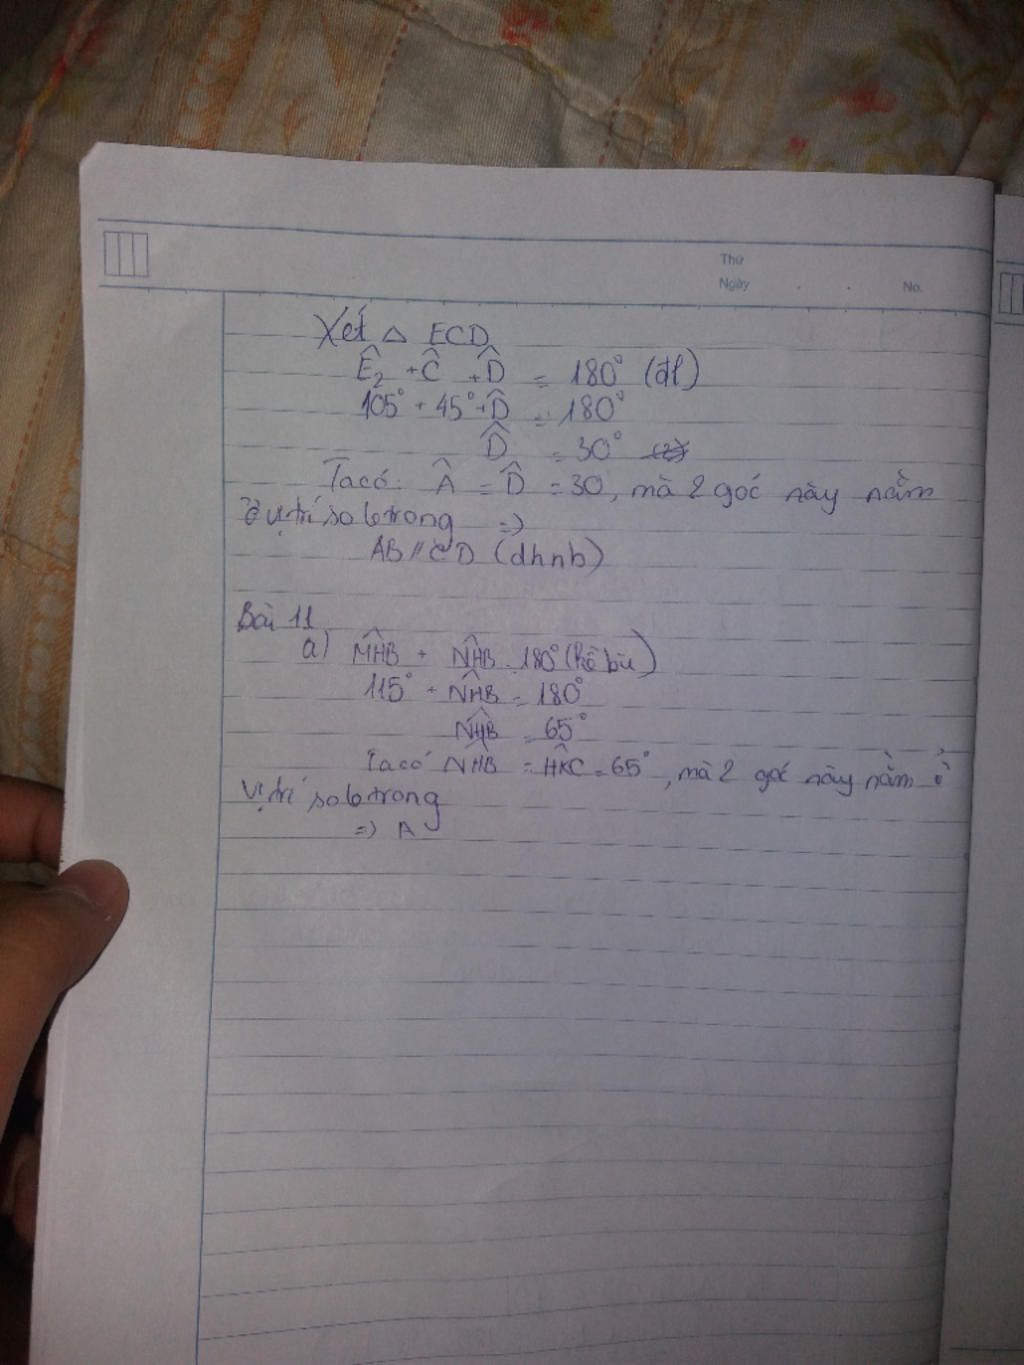 Thứ
Ngày . . No.
Xét △ ECD
Ê₂ + Ĉ + D̂ = 180° (đl)
105° + 45° + D̂ = 180°
D̂ = 30°
Ta có: Â = D̂ = 30, mà 2 góc này nằm
ở vị trí so le trong =>
AB // CD (dhnb)
Bài 11
a) MĤB + NĤB = 180° (kề bù)
115° + NĤB = 180°
NĤB = 65°
Ta có NĤB = HK̂C = 65°, mà 2 góc này nằm ở
vị trí so le trong
=> A